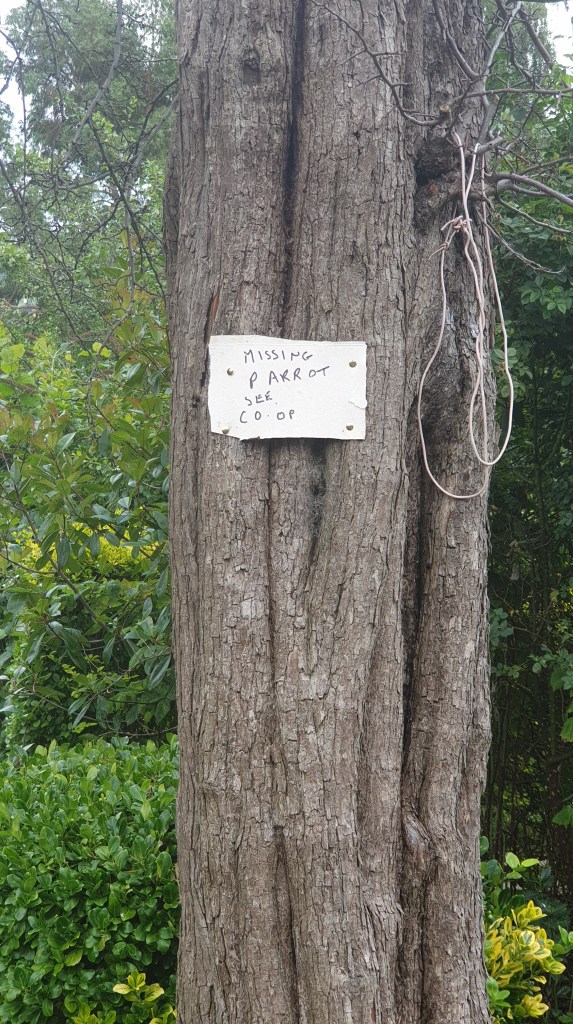 MISSING
PARROT
SEE
CO-OP